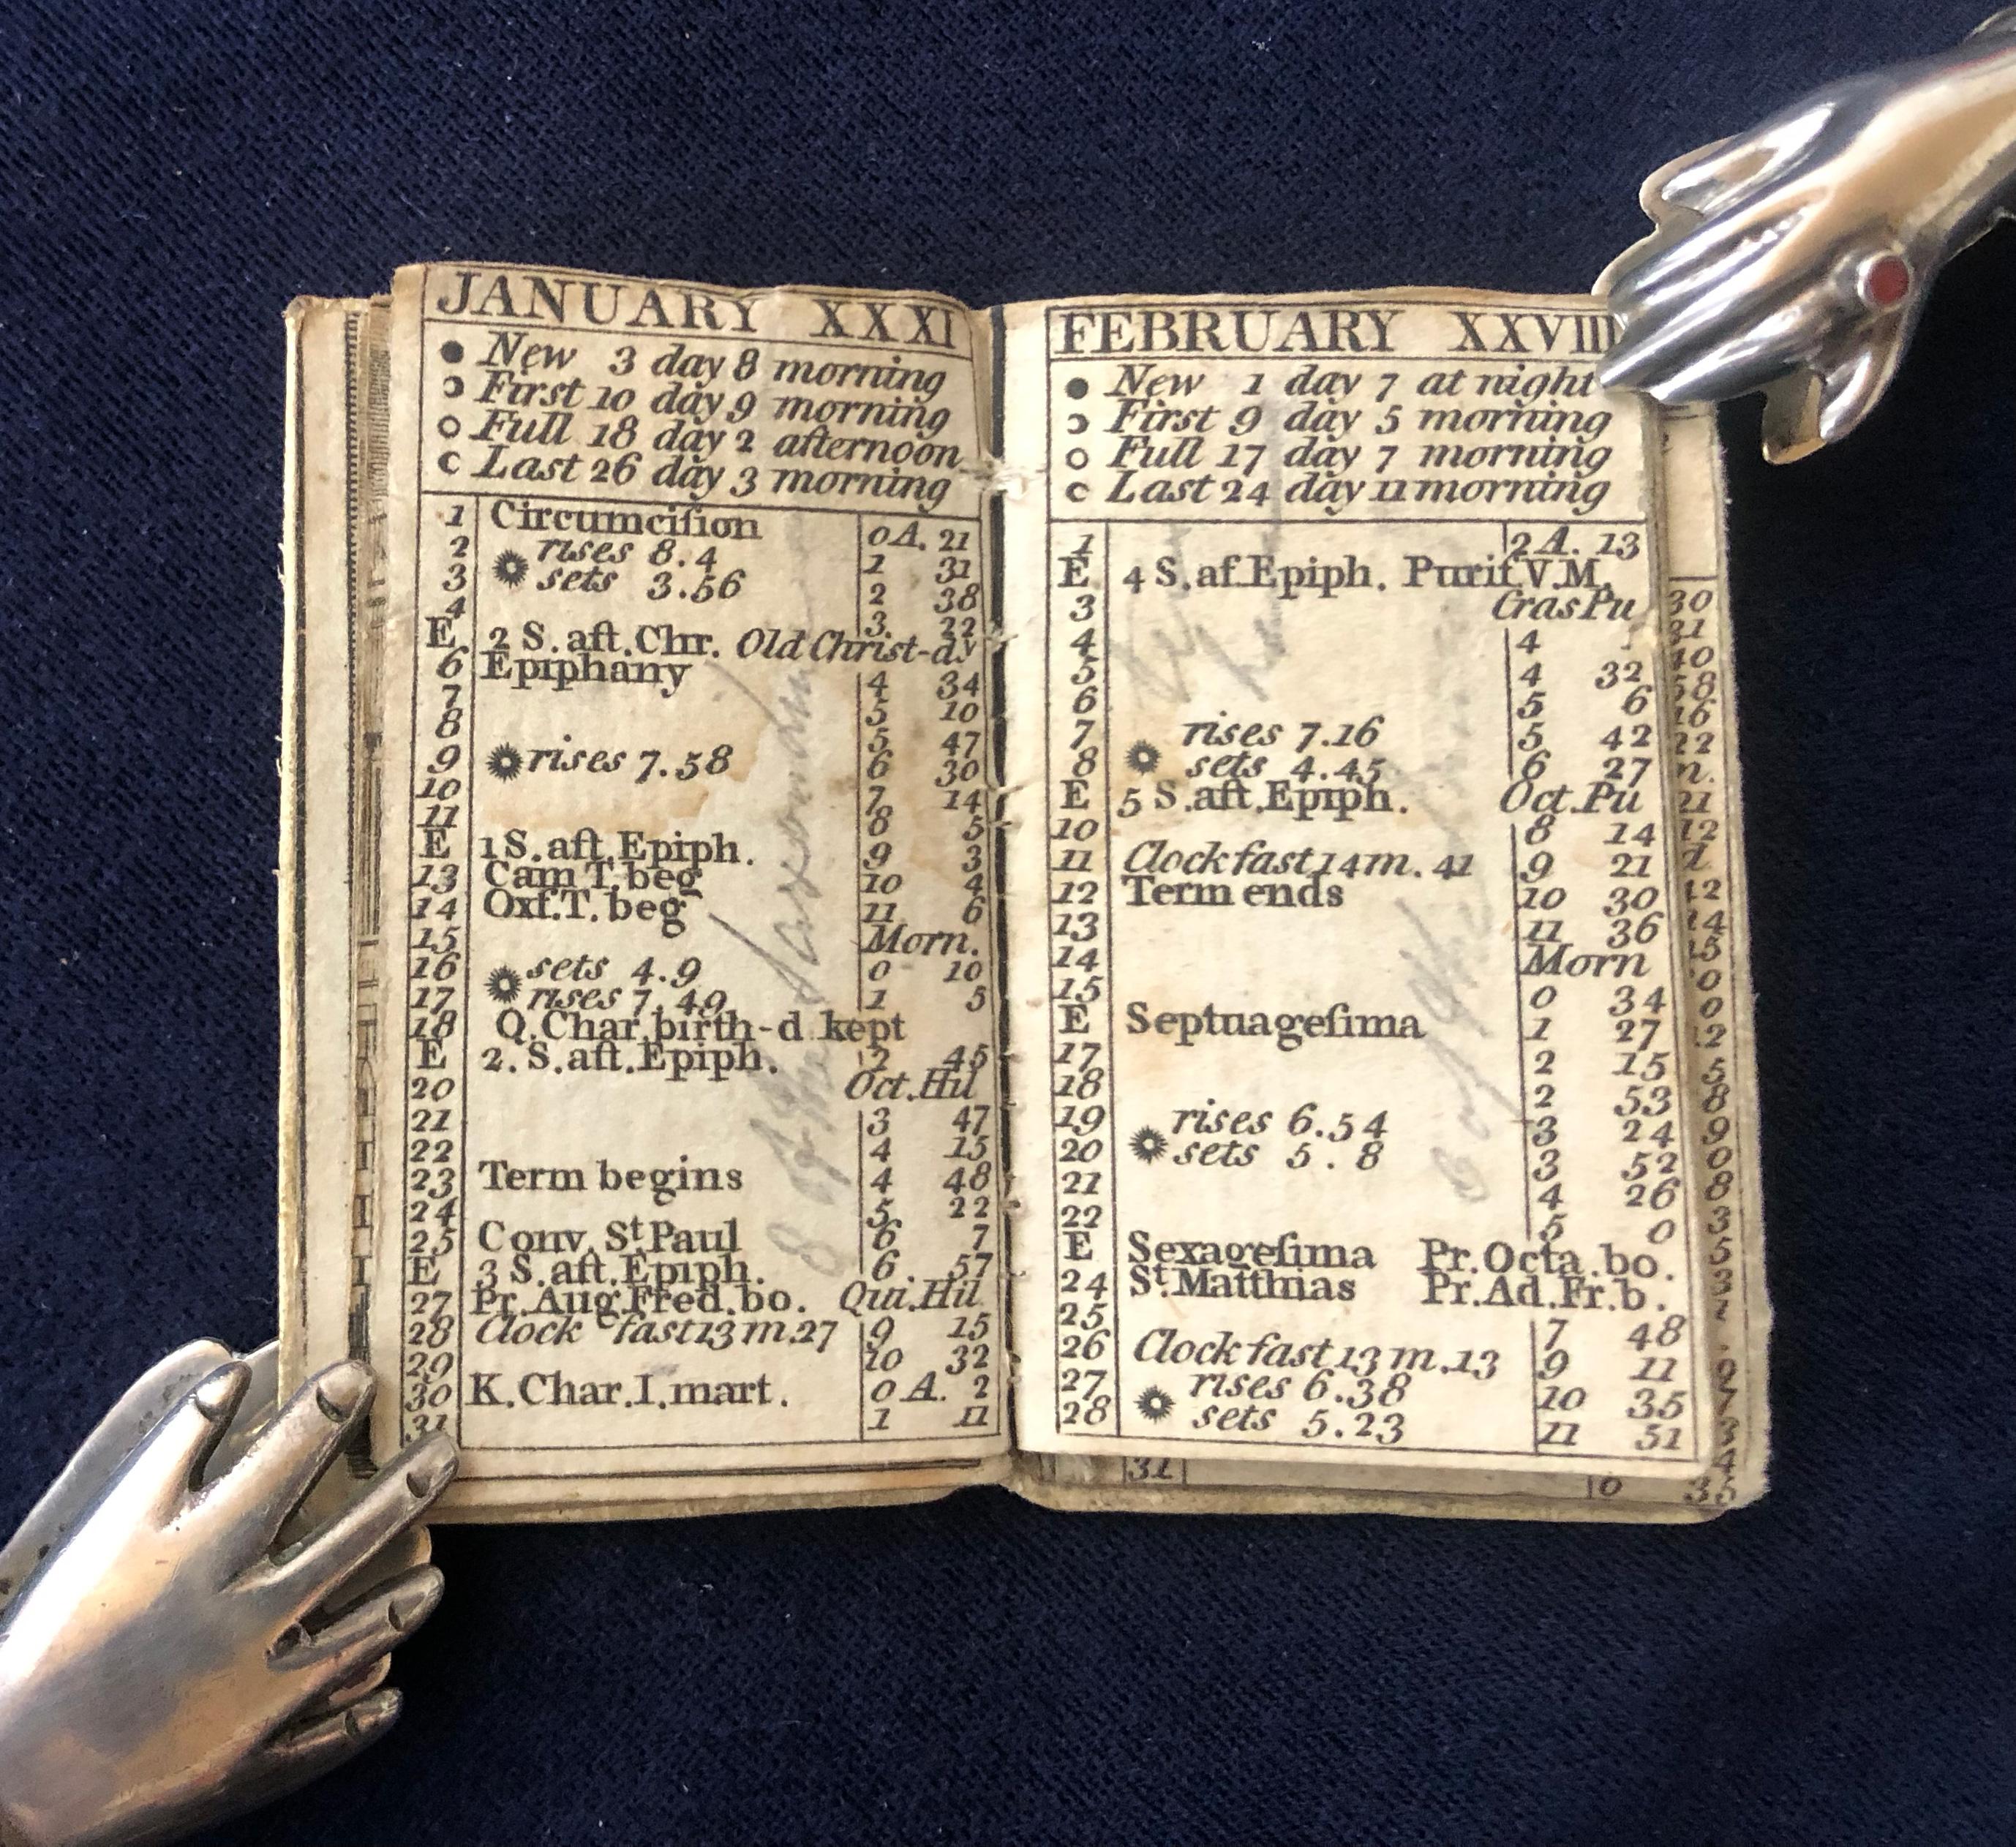 JANUARY XXXI
● New 3 day 8 morning
☽ First 10 day 9 morning
○ Full 18 day 2 afternoon
☾ Last 26 day 3 morning
1 Circumciſion 0A. 21
2 rises 8.4 1 31
3 sets 3.56 2 38
4 3. 22
E 2 S.aft.Chr. Old Christ-dy
6 Epiphany 4 34
7 5 10
8 5 47
9 rises 7.58 6 30
10 7 14
11 8 5
E 1 S.aft.Epiph. 9 3
13 Cam T.beg 10 4
14 Oxf.T.beg 11 6
15 Morn.
16 sets 4.9 0 10
17 rises 7.49 1 5
18 Q.Char.birth-d kept
E 2.S.aft.Epiph. 2 45
20 Oct.Hil
21 3 47
22 4 15
23 Term begins 4 48
24 5 22
25 Conv. St Paul 6 7
E 3 S.aft.Epiph. 6. 57
27 Pr.Aug.Fred.bo. Qui.Hil
28 Clock fast 13m.27 9 15
29 10 32
30 K.Char.I.mart. 0 A. 2
31 1 11
FEBRUARY XXVIII
● New 1 day 7 at night
☽ First 9 day 5 morning
○ Full 17 day 7 morning
☾ Last 24 day 11 morning
1 2 A. 13
E 4 S.af.Epiph. Purif V.M.
3 Cras Pu
4 4
5 4 32
6 5 6
7 rises 7.16 5 42
8 sets 4.45 6 27
E 5 S.aft.Epiph. Oct.Pu
10 8 14
11 Clock fast 14m.41 9 21
12 Term ends 10 30
13 11 36
14 Morn
15 0 34
E Septuageſima 1 27
17 2 15
18 2 53
19 rises 6.54 3 24
20 sets 5.8 3 52
21 4 26
22 5 0
E Sexageſima Pr.Octa.bo.
24 St.Matthias Pr.Ad.Fr.b.
25 7 48
26 Clock fast 13m.13 9 11
27 rises 6.38 10 35
28 sets 5.23 11 51
31
6 35